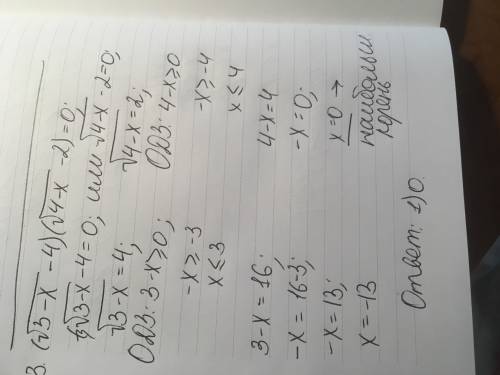 3. (√3-x - 4)(√4-x - 2)=0;
√3-x - 4=0; или √4-x - 2=0;
√3-x = 4; √4-x = 2;
ОДЗ: 3-x≥0; ОДЗ: 4-x≥0
-x≥-3 -x≥-4
x≤3 x≤4
3-x=16; 4-x=4
-x=16-3; -x=0;
-x=13; x=0 →
x=-13 наибольш корень
Ответ: 1) 0.